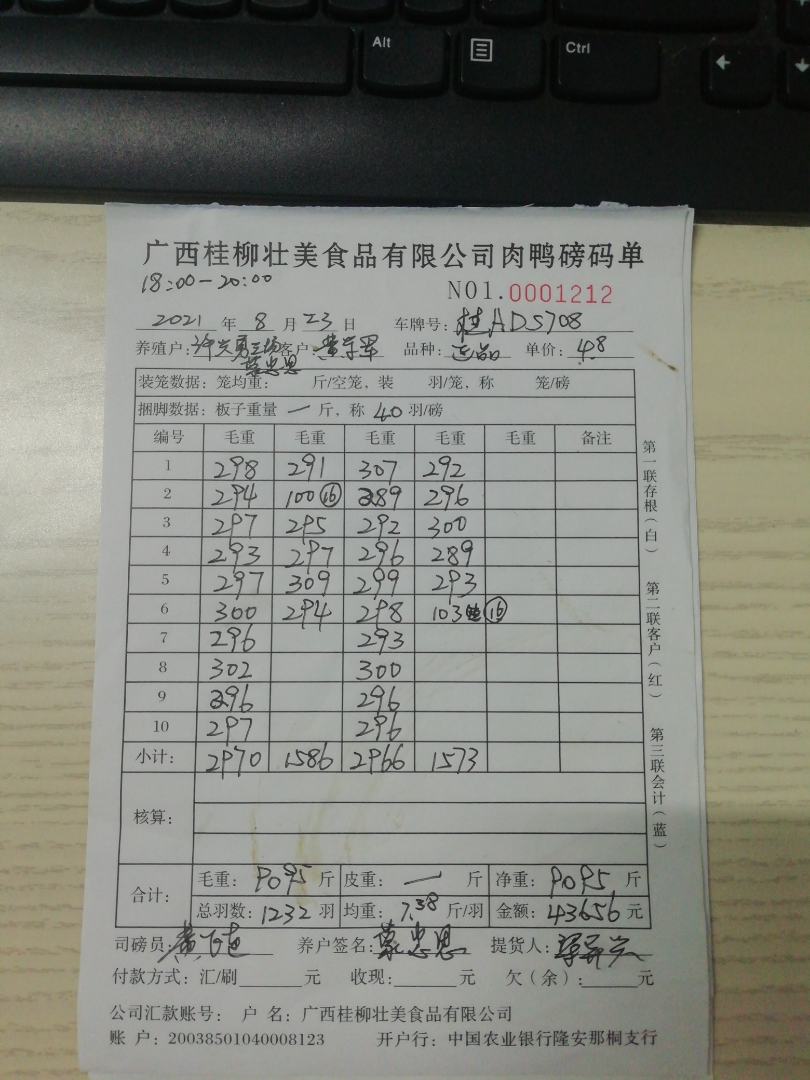 Alt
Ctrl
广西桂柳壮美食品有限公司肉鸭磅码单
18:00-20:00
NO1.0001212
2021 年 8 月 23 日 车牌号: 桂AD5708
养殖户: 客户: 品种: 正品 单价: 4.8
蒙忠恩
装笼数据: 笼均重: 斤/空笼, 装 羽/笼, 称 笼/磅
捆脚数据: 板子重量 一 斤, 称 40 羽/磅
编号 毛重 毛重 毛重 毛重 毛重 备注
1 298 291 307 292
2 294 100⑯ 289 296
3 297 295 292 300
4 293 297 296 289
5 297 309 299 293
6 300 294 298 103 ⑯
7 296 293
8 302 300
9 296 296
10 297 296
小计: 2970 1586 2966 1573
核算:
合计: 毛重: 9095 斤 皮重: 一 斤 净重: 9095 斤
总羽数: 1232 羽 均重: 7.38 斤/羽 金额: 43656 元
司磅员: 养户签名: 蒙忠恩 提货人:
付款方式: 汇/刷 元 收现: 元 欠(余): 元
公司汇款账号: 户 名: 广西桂柳壮美食品有限公司
账 户: 20038501040008123 开户行: 中国农业银行隆安那桐支行
第一联存根(白)
第二联客户(红)
第三联会计(蓝)